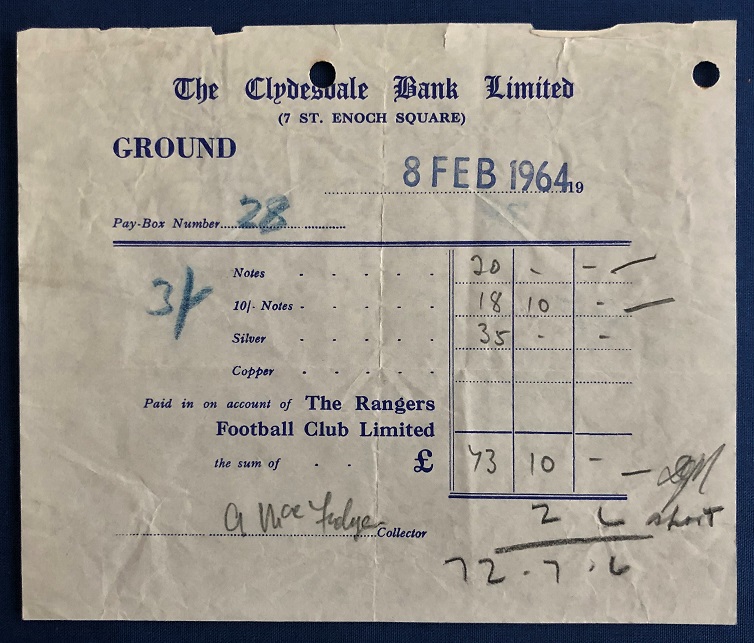 The Clydesdale Bank Limited
(7 ST. ENOCH SQUARE)
GROUND
8 FEB 1964 19
Pay-Box Number 28
3/-
Notes 20 - -
10/- Notes 18 10 -
Silver 35 - -
Copper
Paid in on account of The Rangers
Football Club Limited
the sum of £ 73 10 -
2 6 short
Collector
72 . 7 . 6